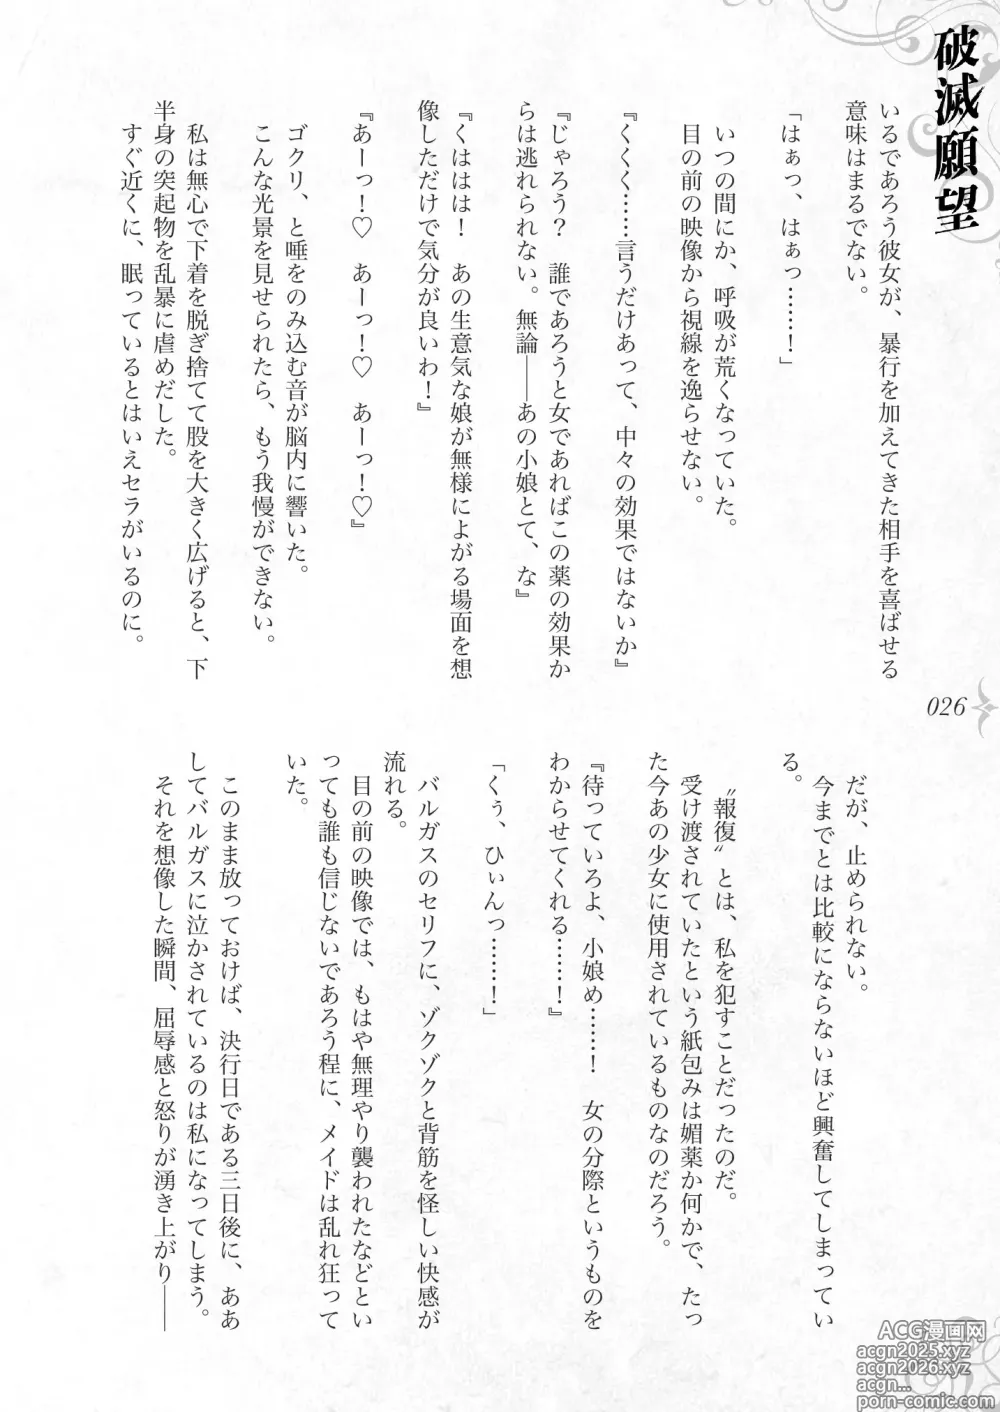 破滅願望
いるであろう彼女が、暴行を加えてきた相手を喜ばせる
意味はまるでない。
「はぁっ、はぁっ……！」
いつの間にか、呼吸が荒くなっていた。
目の前の映像から視線を逸らせない。
『くくく……言うだけあって、中々の効果ではないか』
『じゃろう？　誰であろうと女であればこの薬の効果か
らは逃れられない。無論――あの小娘とて、な』
『くははは！　あの生意気な娘が無様によがる場面を想
像しただけで気分が良いわ！』
『あーっ！♡　あーっ！♡　あーっ！♡』
ゴクリ、と唾をのみ込む音が脳内に響いた。
こんな光景を見せられたら、もう我慢ができない。
私は無心で下着を脱ぎ捨てて股を大きく広げると、下
半身の突起物を乱暴に虐めだした。
すぐ近くに、眠っているとはいえセラがいるのに。
だが、止められない。
今までとは比較にならないほど興奮してしまってい
る。
〝報復〟とは、私を犯すことだったのだ。
受け渡されていたという紙包みは媚薬か何かで、たっ
た今あの少女に使用されているものなのだろう。
『待っていろよ、小娘め……！　女の分際というものを
わからせてくれる……！』
「くぅ、ひぃんっ……！」
バルガスのセリフに、ゾクゾクと背筋を怪しい快感が
流れる。
目の前の映像では、もはや無理やり襲われたなどとい
っても誰も信じないであろう程に、メイドは乱れ狂って
いた。
このまま放っておけば、決行日である三日後に、ああ
してバルガスに泣かされているのは私になってしまう。
それを想像した瞬間、屈辱感と怒りが湧き上がり――
026
ACG漫画网
acgn2025.xyz
acgn2026.xyz
acgn...
porn-comic.com